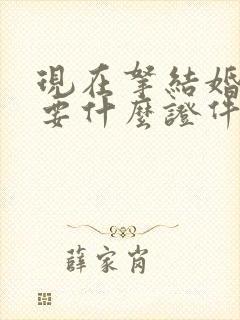 現在拏結婚
要什麼證件
薛家肖